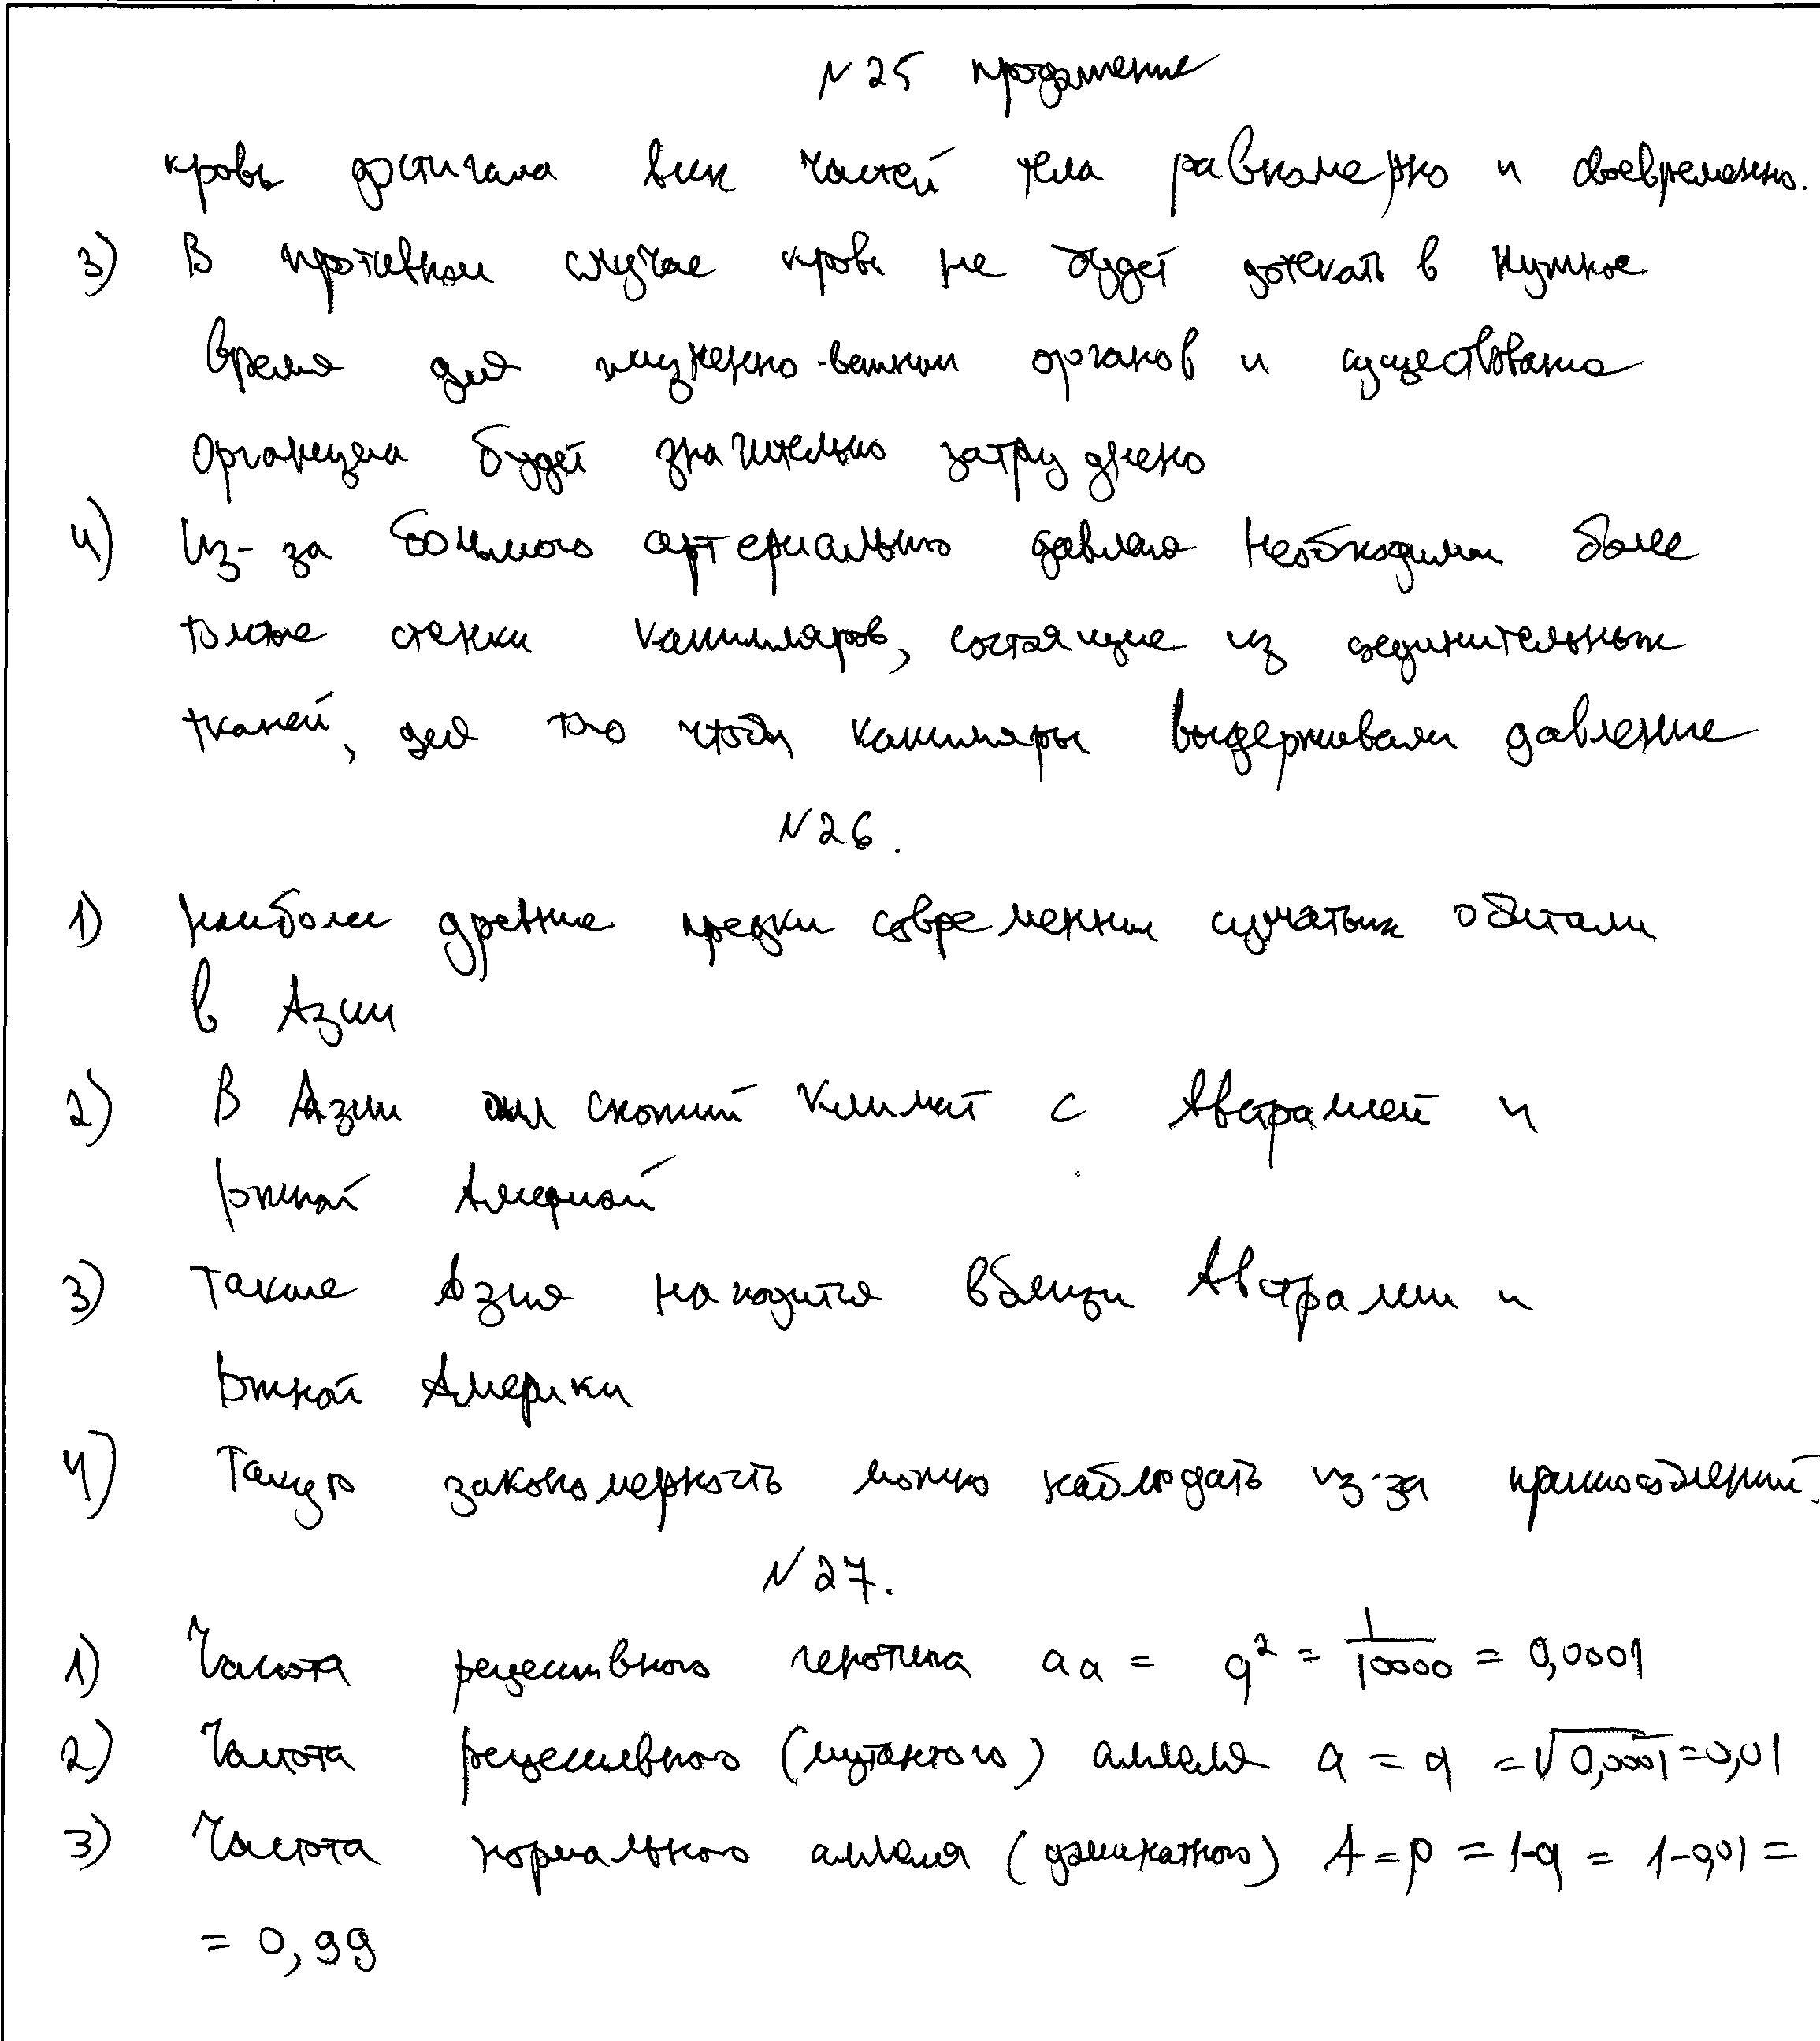 N 25 продолжение
кровь достигала всех частей тела равномерно и своевременно.
3) В противном случае кровь не будет дотекать в нужное
время для жизненно-важных органов и существование
организма будет значительно затруднено
4) Из-за большого артериального давления необходимы более
толстые стенки капилляров, состоящие из соединительных
тканей, для того чтобы капилляры выдерживали давление
N 26.
1) Наиболее древние предки современных сумчатых обитали
в Азии
2) В Азии был схожий климат с Австралией и
Южной Америкой
3) Также Азия находится вблизи Австралии и
Южной Америки
4) Такую закономерность можно наблюдать из-за приспособлений.
N 27.
1) Частота рецессивного генотипа aa = q² = 1/10000 = 0,0001
2) Частота рецессивного (мутантого) аллеля a = q = √0,0001 = 0,01
3) Частота нормального аллеля (доминатного) A = p = 1-q = 1-0,01 =
= 0,99